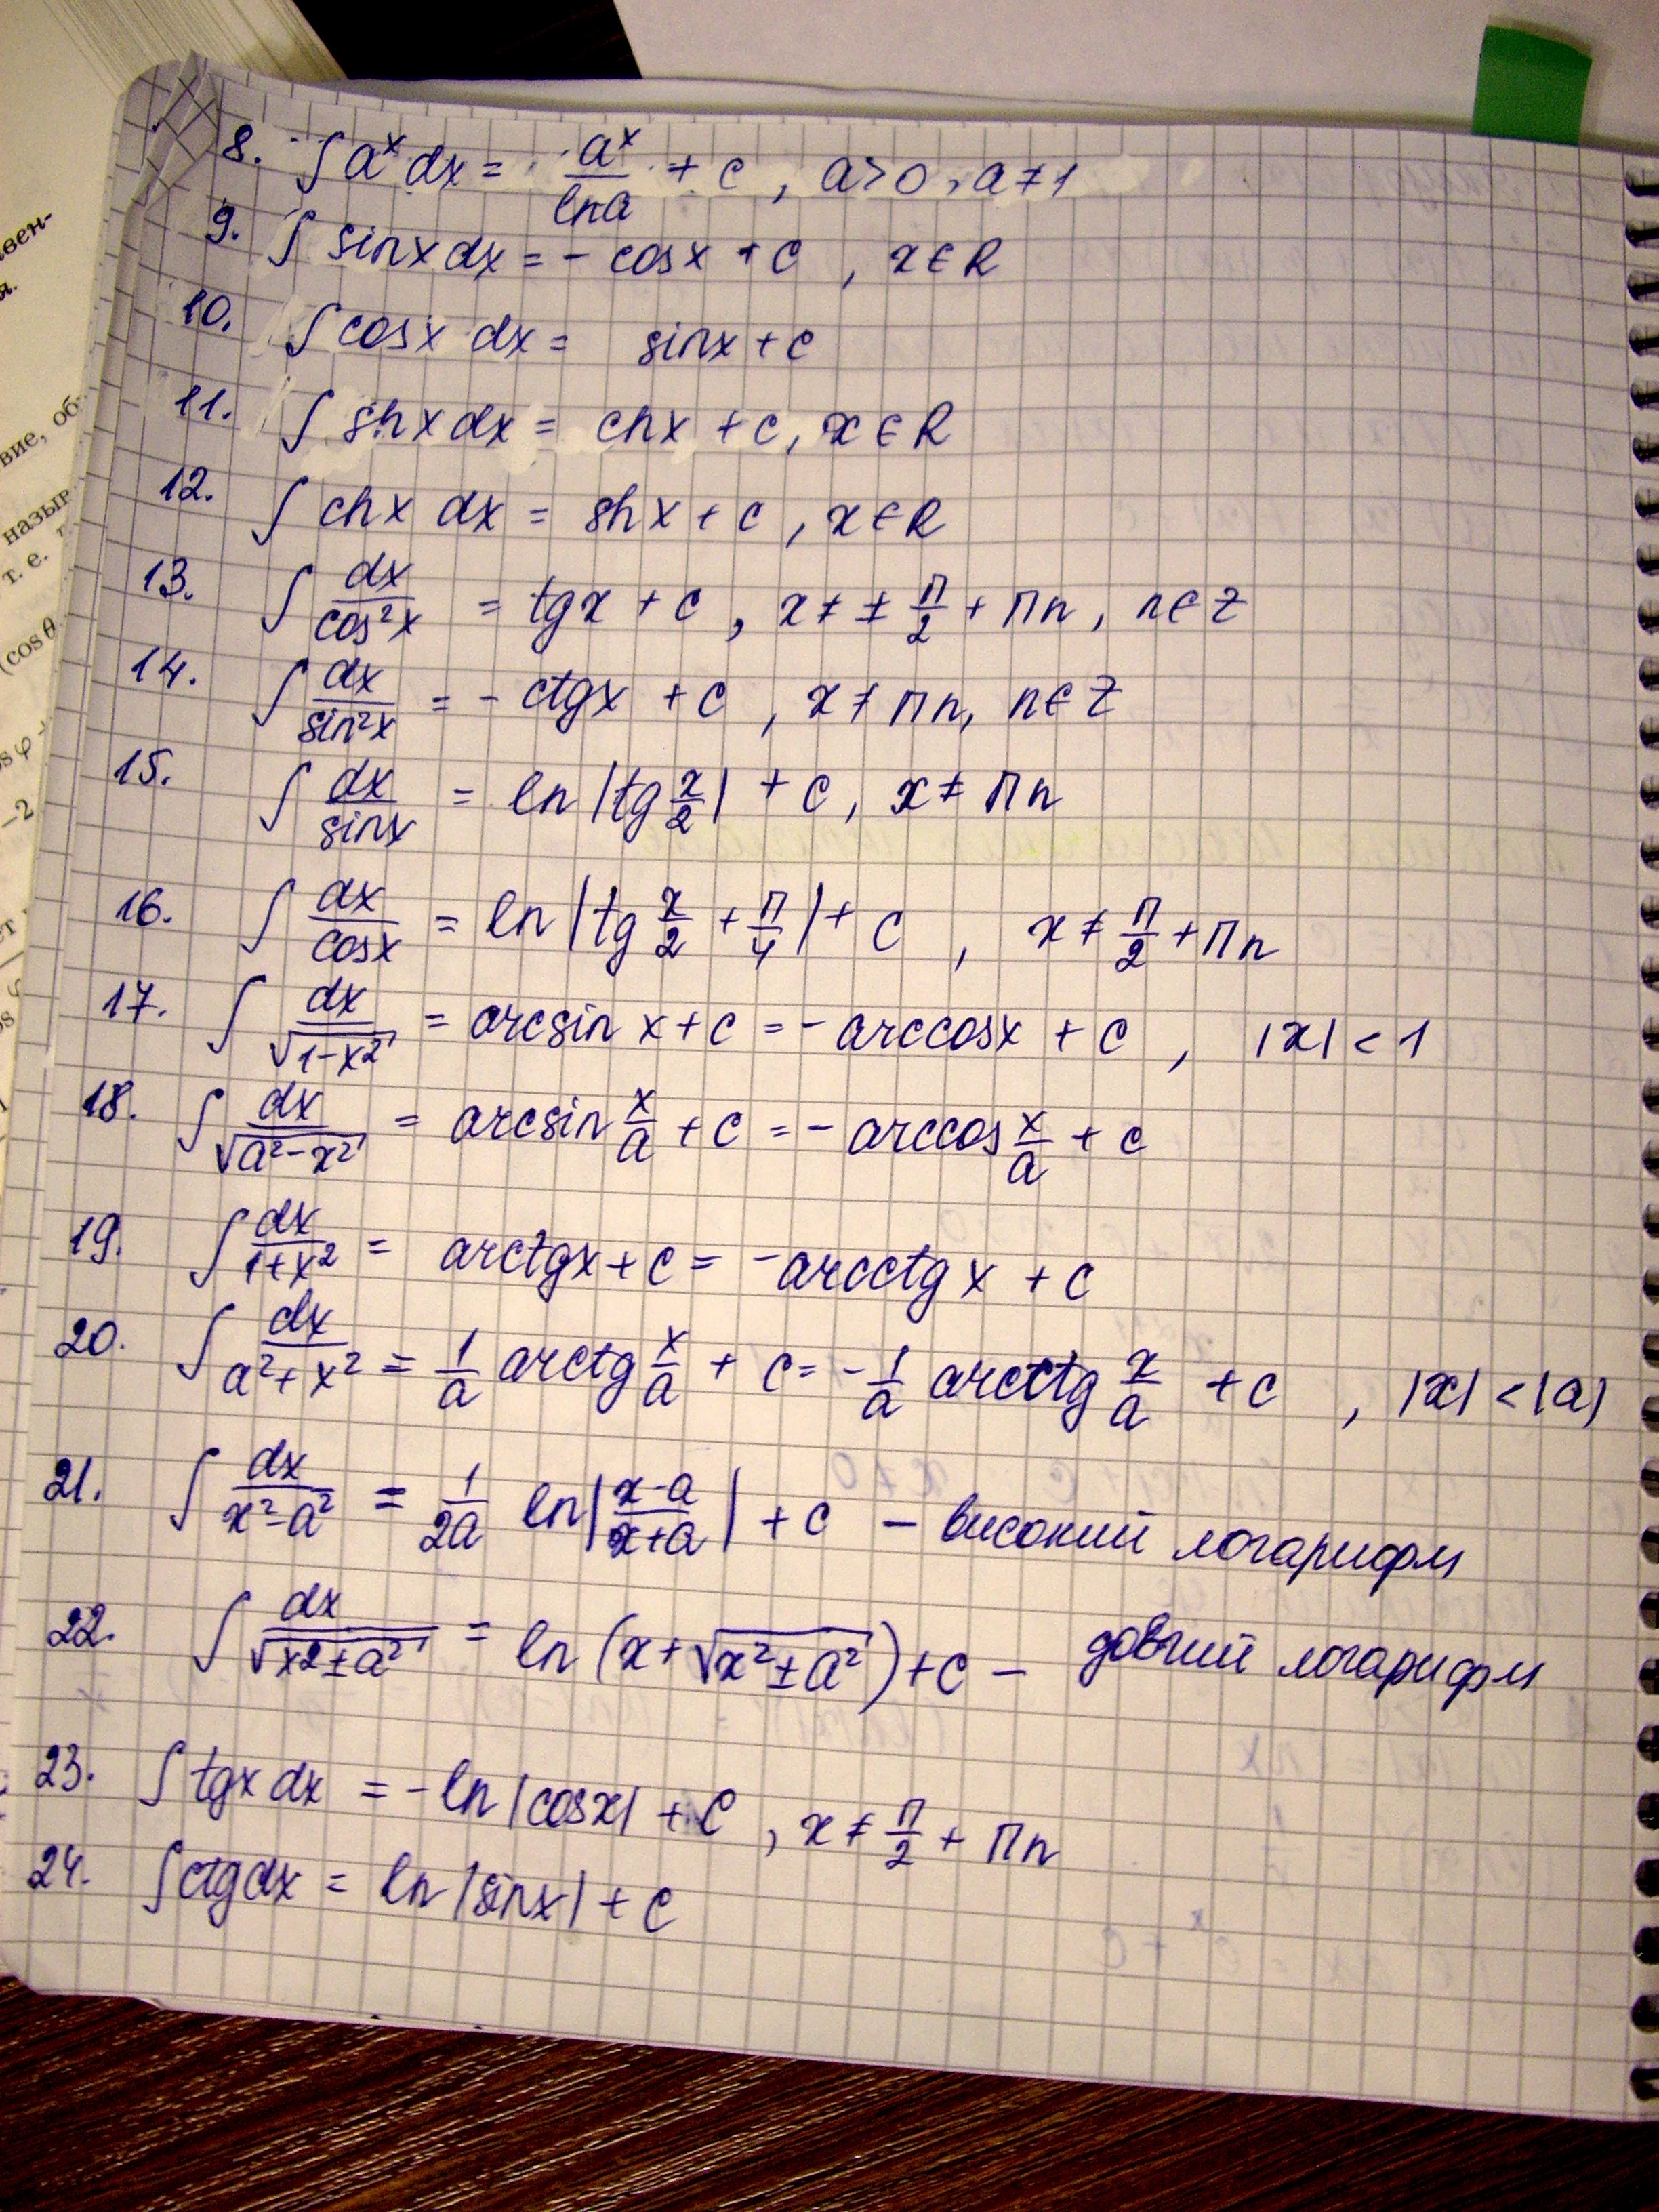 вен-
я.
вие, об-
назыв
т. е.
(cos θ
s φ
-2
8. ∫ aˣ dx = aˣ/ln a + c, a>0, a≠1
9. ∫ sinx dx = - cosx + c, x∈R
10. ∫ cosx dx = sinx + c
11. ∫ shx dx = chx + c, x∈R
12. ∫ chx dx = shx + c, x∈R
13. ∫ dx/cos²x = tgx + c, x ≠ ± π/2 + πn, n∈Z
14. ∫ dx/sin²x = - ctgx + c, x ≠ πn, n∈Z
15. ∫ dx/sinx = ln |tg x/2| + c, x ≠ πn
16. ∫ dx/cosx = ln |tg x/2 + π/4| + c, x ≠ π/2 + πn
17. ∫ dx/√(1-x²) = arcsin x + c = - arccosx + c, |x| < 1
18. ∫ dx/√(a²-x²) = arcsin x/a + c = - arccos x/a + c
19. ∫ dx/(1+x²) = arctgx + c = -arcctg x + c
20. ∫ dx/(a²+x²) = 1/a arctg x/a + c = - 1/a arcctg x/a + c, |x| < |a|
21. ∫ dx/(x²-a²) = 1/2a ln |(x-a)/(x+a)| + c - високий логарифм
22. ∫ dx/√(x²±a²) = ln (x+√(x²±a²)) + c - довгий логарифм
23. ∫ tgx dx = - ln |cosx| + C, x ≠ π/2 + πn
24. ∫ ctg dx = ln |sinx| + c